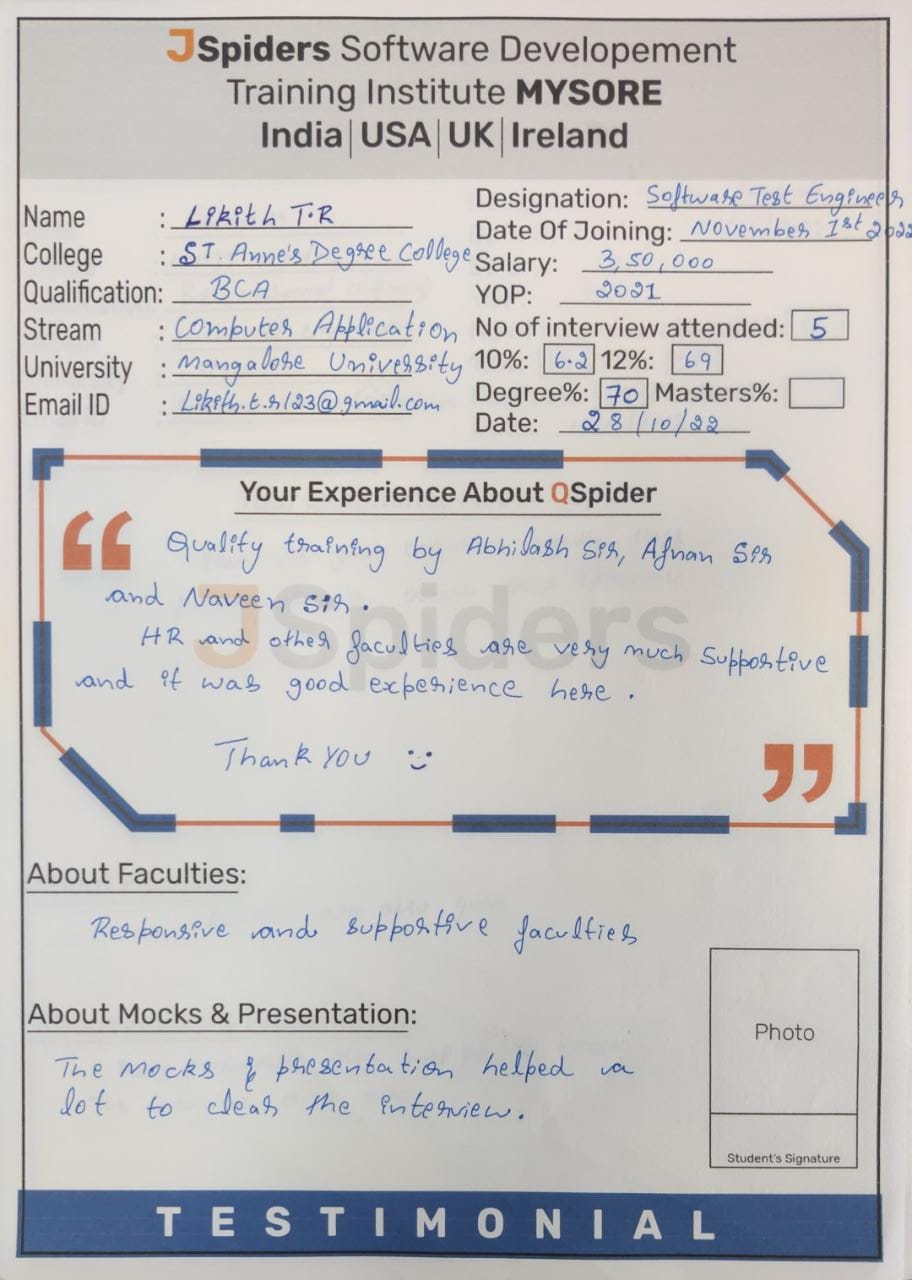 JSpiders Software Developement
Training Institute MYSORE
India|USA|UK|Ireland
Name : Likith T.R
College : ST. Anne's Degree College
Qualification: BCA
Stream : Computer Application
University : Mangalore University
Email ID : Likith.t.r123@gmail.com
Designation: Software Test Engineer
Date Of Joining: November 1st 2022
Salary: 3,50,000
YOP: 2021
No of interview attended: 5
10%: 6.2 12%: 69
Degree%: 70 Masters%:
Date: 28/10/22
Your Experience About QSpider
“
Quality training by Abhilash Sir, Afnan Sir
and Naveen sir.
HR and other faculties are very much Supportive
and it was good experience here.
Thank YOU :)
”
JSpiders
About Faculties:
Responsive and supportive faculties
About Mocks & Presentation:
The Mocks & presentation helped a
lot to clear the interview.
Photo
Student's Signature
TESTIMONIAL